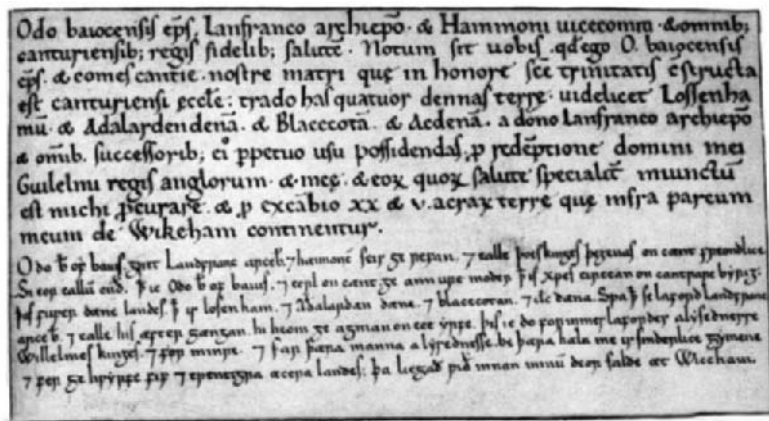 Odo baiocensis ep̄s, Lanfranco archiep̄o · & Hammoni uicecomiti · & omnib;
canturiensib; regis fidelib; salutē · Notum sit uobis · qd̄ ego O. baiocensis
ep̄s · & comes cantie · nostre matri quę in honore scē trinitatis c̄structa
est canturiensi eccłe : trado has quatuor dennas terrę · uidelicet Lossenha
mū · & Adalardendenā · & Blaccotā · & Aedenā · a dono Lanfranco archiep̄o
& om̄ib. successorib; ei᾽ ꝑpetuo usu possidendas, ꝓ redēptione domini mei
Guilelmi regis anglorum · & meę · & eoꝝ quoꝝ salutē specialit̄ iniunctū
est michi ꝓcurare · & ꝓ excābio xx & v. acraꝝ terrę quę infra parcum
meum de Wikeham continentur.
Odo ƀ of baius gret Landfranc arceƀ ⁊ hæimonē scir ge refan · ⁊ ealle þæs kinges þegenas on cænt
ic Odo ƀ of baius · ⁊ eorl on cænt ge ann ure moder
þas fuwer dæne landes · þ is losenham · ⁊ Adalardan dæne · ⁊ blaccotan · ⁊ dæna · Swa þ se laford landfranc
arce ƀ · ⁊ ealle his æfter gængan · hi heom ge agnian on ece yrfe · þis ic do for minner laforder alysednesse
Willelmes kinges · ⁊ for minre · ⁊ for þæra manna alysednesse · be þæra hæla me is sinderlice gymene
⁊ for ge hwyrfe fif ⁊ twentigra æcera landes : þa licgað innan minū deor falde æt Wicham.